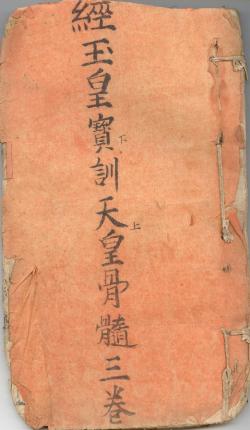 經玉皇寶訓天皇骨髓三卷
下
上